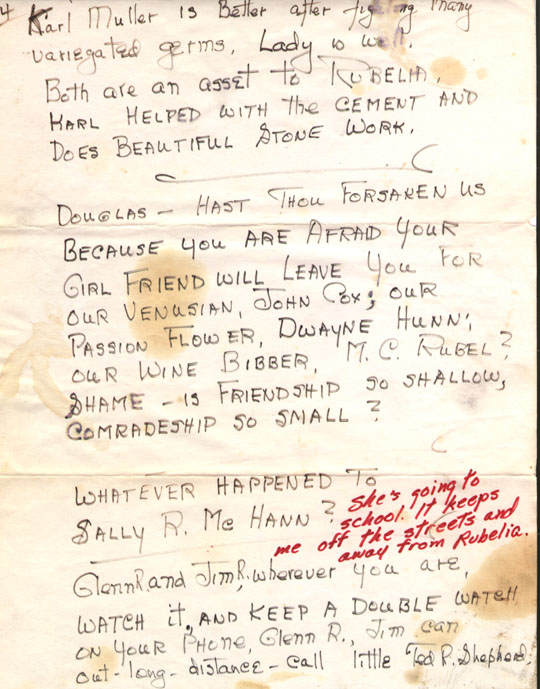 4 Karl Muller is Better after fighting many
variegated germs, Lady is well.
Both are an asset to RUBELIA,
KARL HELPED WITH the CEMENT AND
DOES BEAUTIFUL STONE WORK.
DOUGLAS — HAST THOU FORSAKEN US
BECAUSE YOU ARE AFRAID YOUR
GIRL FRIEND WILL LEAVE YOU FOR
OUR VENUSIAN, JOHN COX; OUR
PASSION FLOWER, DWAYNE HUNN;
OUR WINE BIBBER, M. C. RUBEL?
SHAME — IS FRIENDSHIP SO SHALLOW,
COMRADESHIP SO SMALL?
WHATEVER HAPPENED TO
SALLY R. Mc HANN?
She's going to
school. It keeps
me off the streets and
away from Rubelia.
Glenn R. and Jim R, wherever you are,
WATCH it, AND KEEP A DOUBLE WATCH
ON YOUR PHONE, Glenn R., Jim can
out-long-distance-call little Ted R. Shepherd.